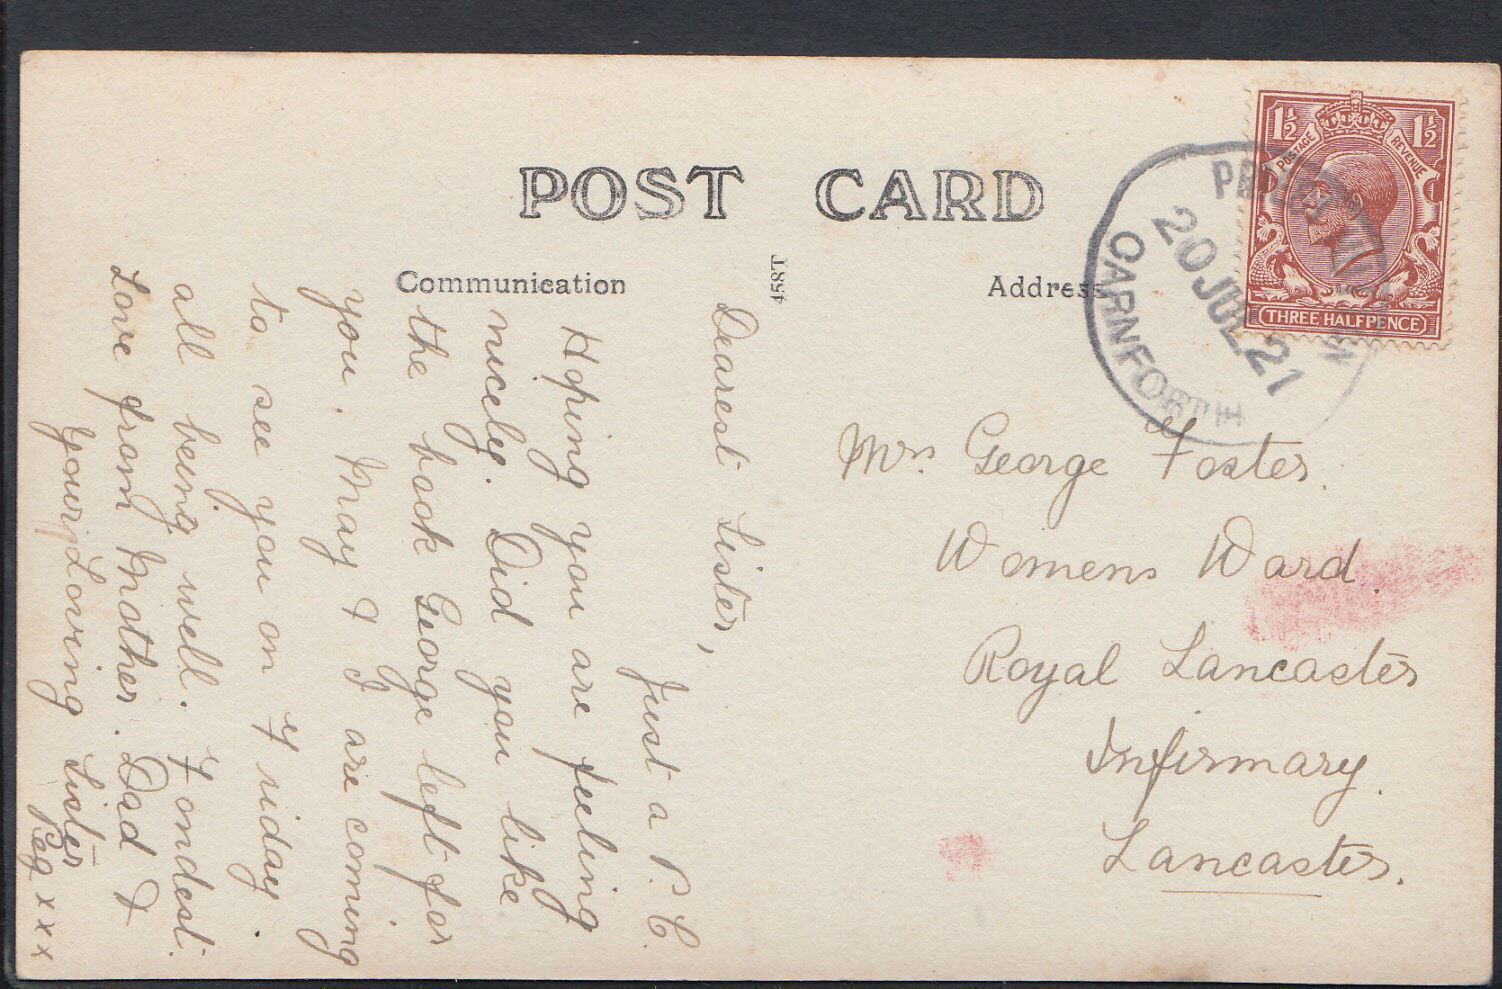 POST CARD
Communication
458T
Address
1½ 1½
POSTAGE REVENUE
THREE HALFPENCE
20 JUL 21
CARNFORTH
Mrs. George Foster.
Womens Ward.
Royal Lancaster
Infirmary.
Lancaster.
Dearest Sister,
Just a P.C.
Hoping you are feeling
nicely. Did you like
the book George left for
you. May & I are coming
to see you on Friday.
all being well. Fondest.
Love from Mother. Dad &
your Loving Sister
Peg x x x